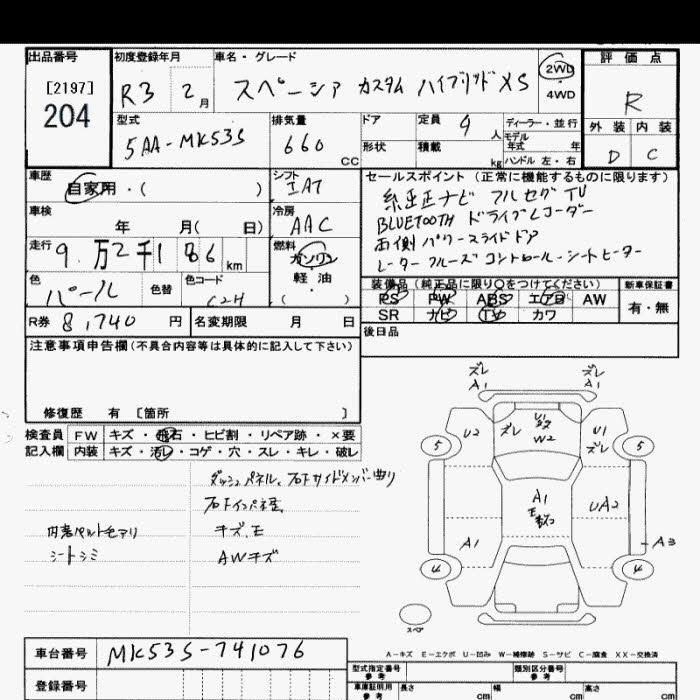 出品番号
[2197]
204
初度登録年月
R3 2月
車名・グレード
スペーシア カスタム ハイブリッド XS
2WD
4WD
評価点
R
外装 内装
D C
型式
5AA-MK53S
排気量
660 CC
ドア
形状
定員 4 人
積載 kg
ディーラー・並行
モデル
年式 年
ハンドル 左・右
車歴
自家用・( )
シフト
IAT
車検
年 月( 日)
冷房
AAC
走行
9万2千186 km
燃料
ガソリン
軽油
( )
色
パール
色替
色コード
C2H
R券 8,740 円
名変期限 月 日
セールスポイント(正常に機能するものに限ります)
純正ナビ フルセグTV
BLUETOOTH ドライブレコーダー
両側パワースライドドア
レーダークルーズコントロール・シートヒーター
装備品(純正品に限り○をつけてください)
PS PW ABS エアB AW
SR ナビ TV カワ
新車保証書
有・無
後日品
注意事項申告欄(不具合内容等は具体的に記入して下さい)
修復歴 有 [箇所 ]
検査員
記入欄
FW キズ・飛石・ヒビ割・リペア跡・×要
内装 キズ・汚レ・コゲ・穴・スレ・キレ・破レ
ダッシュパネル、右フサイドメンバー曲り
キズ、E
AWキズ
シートシミ
ズレ
A1
ズレ
A1
U2
ズレ
U1
W2
U1
ズレ
5
5
A1
E
UA2
A1
A3
4
4
スペア
A-キズ E-エクボ U-凹み W-補修跡 S-サビ C-腐食 XX-交換済
車台番号
MK53S-741076
登録番号
型式指定番号
参考
類別区分番号
参考
車庫証明用
参考
長さ cm
幅 cm
高さ cm